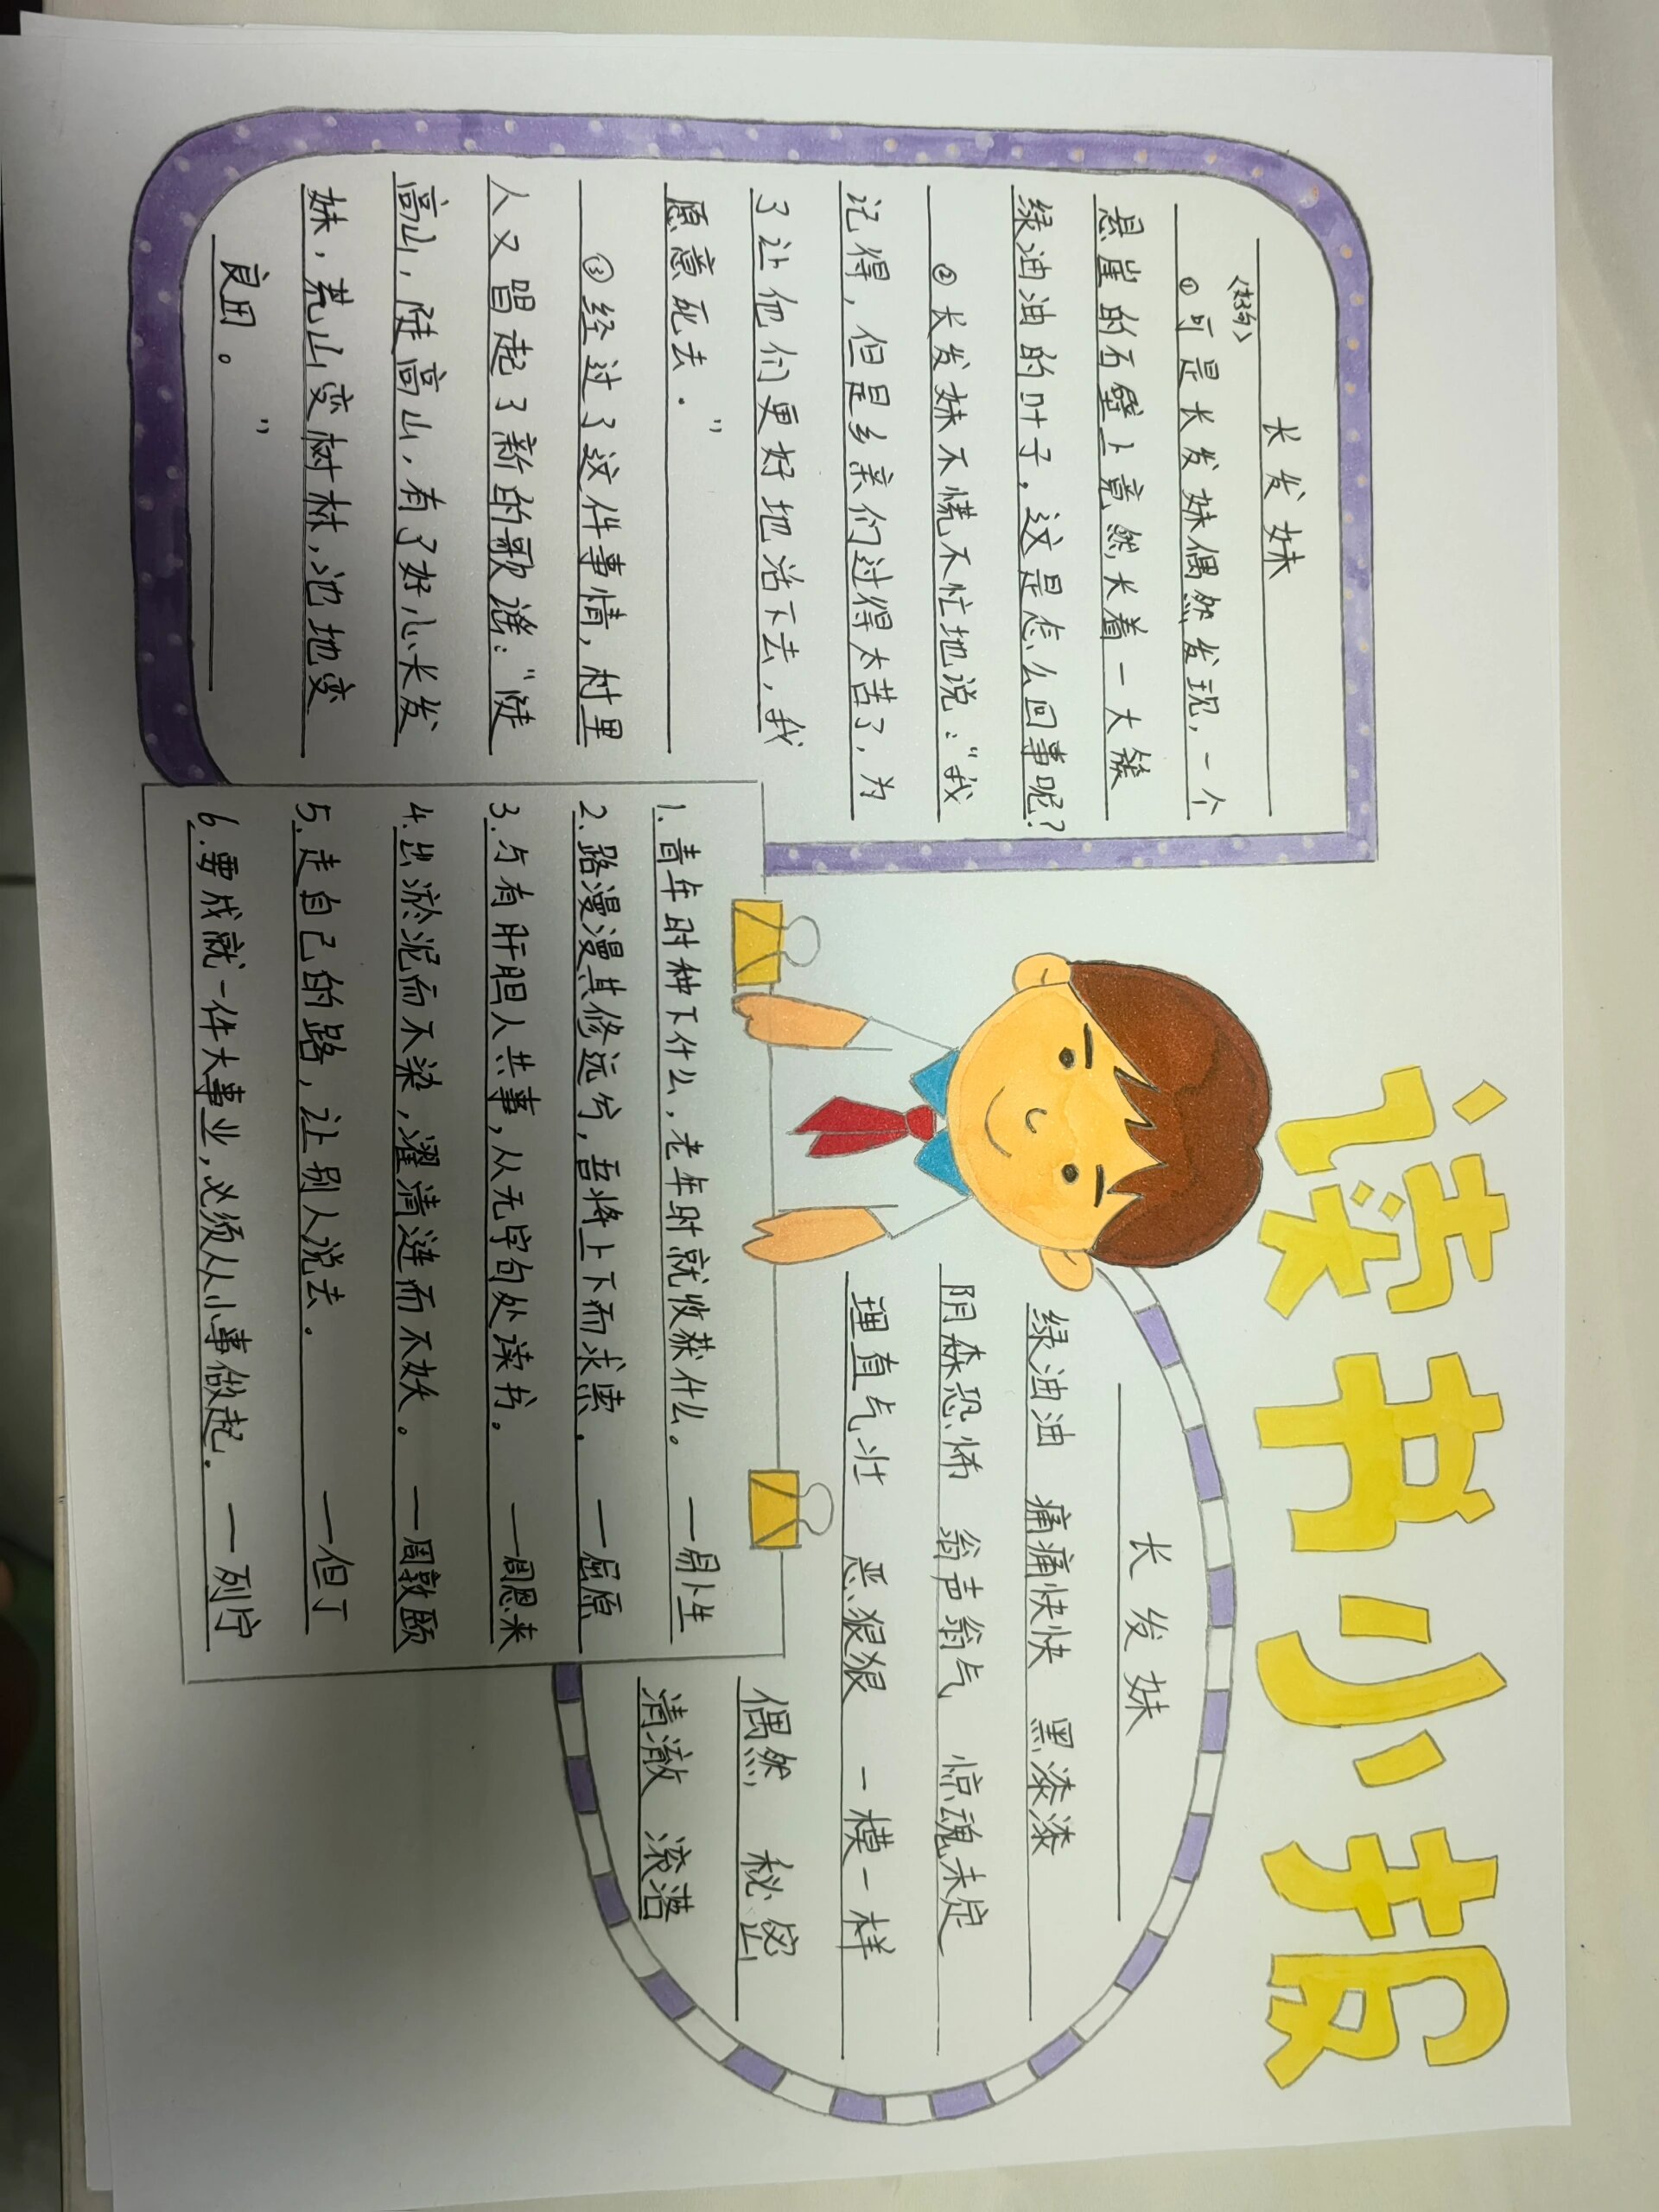 读书小报
长发妹
〈好句〉
①可是长发妹偶然发现，一个
悬崖的石壁上竟然长着一大簇
绿油油的叶子，这是怎么回事呢？
②长发妹不慌不忙地说：“我
记得，但是乡亲们过得太苦了，为
了让他们更好地活下去，我
愿意死去。”
③经过了这件事情，村里
人又唱起了新的歌谣：“陡
高山，陡高山，有了好心长发
妹，荒山变树林，池地变
良田。”
长发妹
绿油油 痛痛快快 黑漆漆
阴森恐怖 翁声翁气 惊魂未定
理直气壮 恶狠狠 一模一样
偶然 秘密
清澈 滚落
1.青年时种下什么，老年时就收获什么。——易卜生
2.路漫漫其修远兮，吾将上下而求索。——屈原
3.与有肝胆人共事，从无字句处读书。——周恩来
4.出淤泥而不染，濯清涟而不妖。——周敦颐
5.走自己的路，让别人说去。——但丁
6.要成就一件大事业，必须从小事做起。——列宁